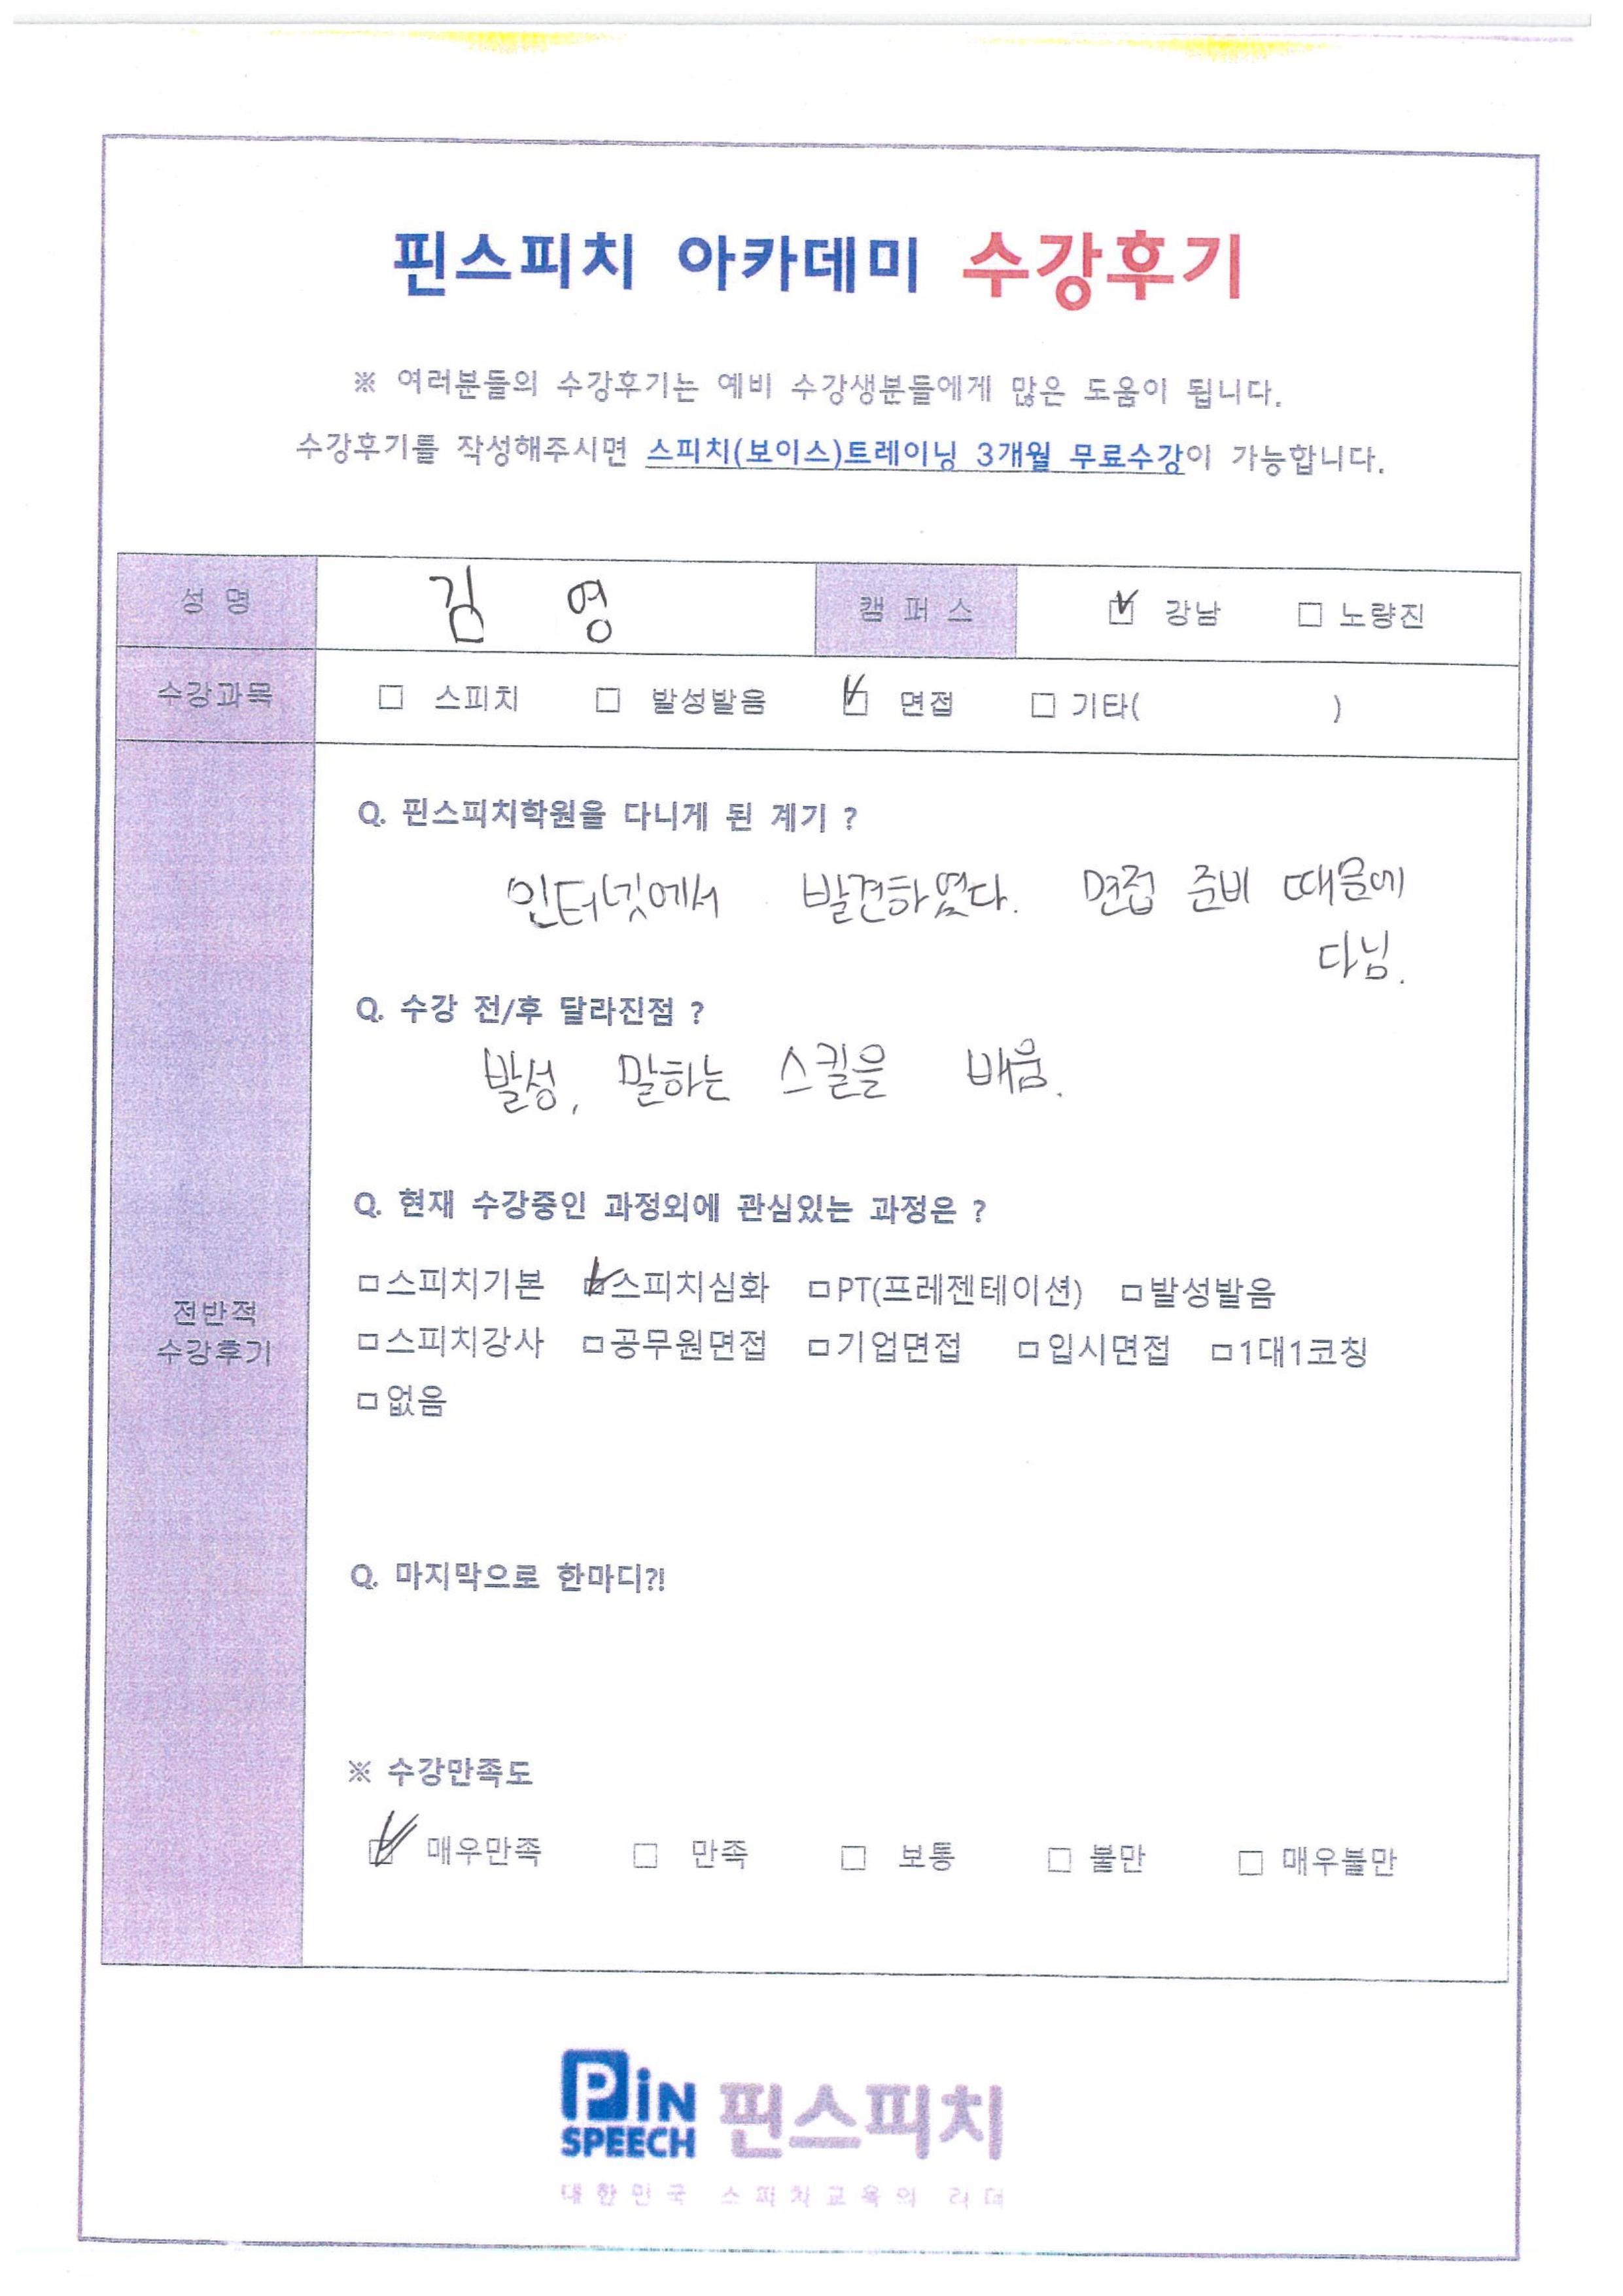 핀스피치 아카데미 수강후기
※ 여러분들의 수강후기는 예비 수강생분들에게 많은 도움이 됩니다.
수강후기를 작성해주시면 스피치(보이스)트레이닝 3개월 무료수강이 가능합니다.
성 명 김 영 캠 퍼 스 ☑ 강남 □ 노량진
수강과목 □ 스피치 □ 발성발음 ☑ 면접 □ 기타( )
Q. 핀스피치학원을 다니게 된 계기 ?
인터넷에서 발견하였다. 면접 준비 때문에
다님.
Q. 수강 전/후 달라진점 ?
발성, 말하는 스킬을 배움.
Q. 현재 수강중인 과정외에 관심있는 과정은 ?
□스피치기본 ☑스피치심화 □PT(프레젠테이션) □발성발음
전반적
수강후기
□스피치강사 □공무원면접 □기업면접 □입시면접 □1대1코칭
□없음
Q. 마지막으로 한마디?!
※ 수강만족도
☑ 매우만족 □ 만족 □ 보통 □ 불만 □ 매우불만
PiN
SPEECH
핀스피치
대한민국 스피치교육의 리더